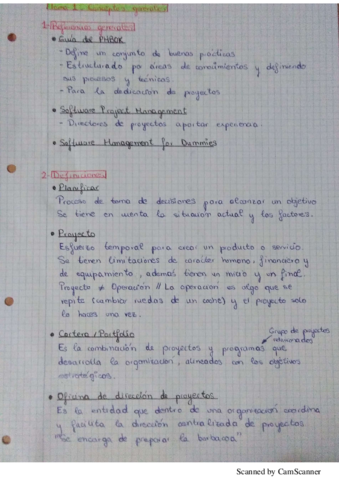 Tema 1: Conceptos generales
1- Referencias generales
• Guía del PMBOK
- Define un conjunto de buenas prácticas
- Estructurado por áreas de conocimientos y definiendo
sus procesos y técnicas
- Para la dedicación de proyectos
• Software Project Management
- Directores de proyectos aportar experiencia.
• Software Management for Dummies
2- Definiciones
• Planificar
Proceso de toma de decisiones para alcanzar un objetivo
Se tiene en cuenta la situación actual y los factores.
• Proyecto
Esfuerzo temporal para crear un producto o servicio.
Se tienen limitaciones de carácter humano, financiero y
de equipamiento, además tienen un inicio y un final.
Proyecto ≠ Operación // La operación es algo que se
repite (cambiar ruedas de un coche) y el proyecto solo
lo haces una vez.
• Cartera / Portfolio
Grupo de proyectos
relacionados
Es la combinación de proyectos y programas que
desarrolla la organización, alineados con los objetivos
estratégicos.
• Oficina de dirección de proyectos
Es la entidad que dentro de una organización coordina
y facilita la dirección centralizada de proyectos.
"Se encarga de preparar la barbacoa"
Scanned by CamScanner